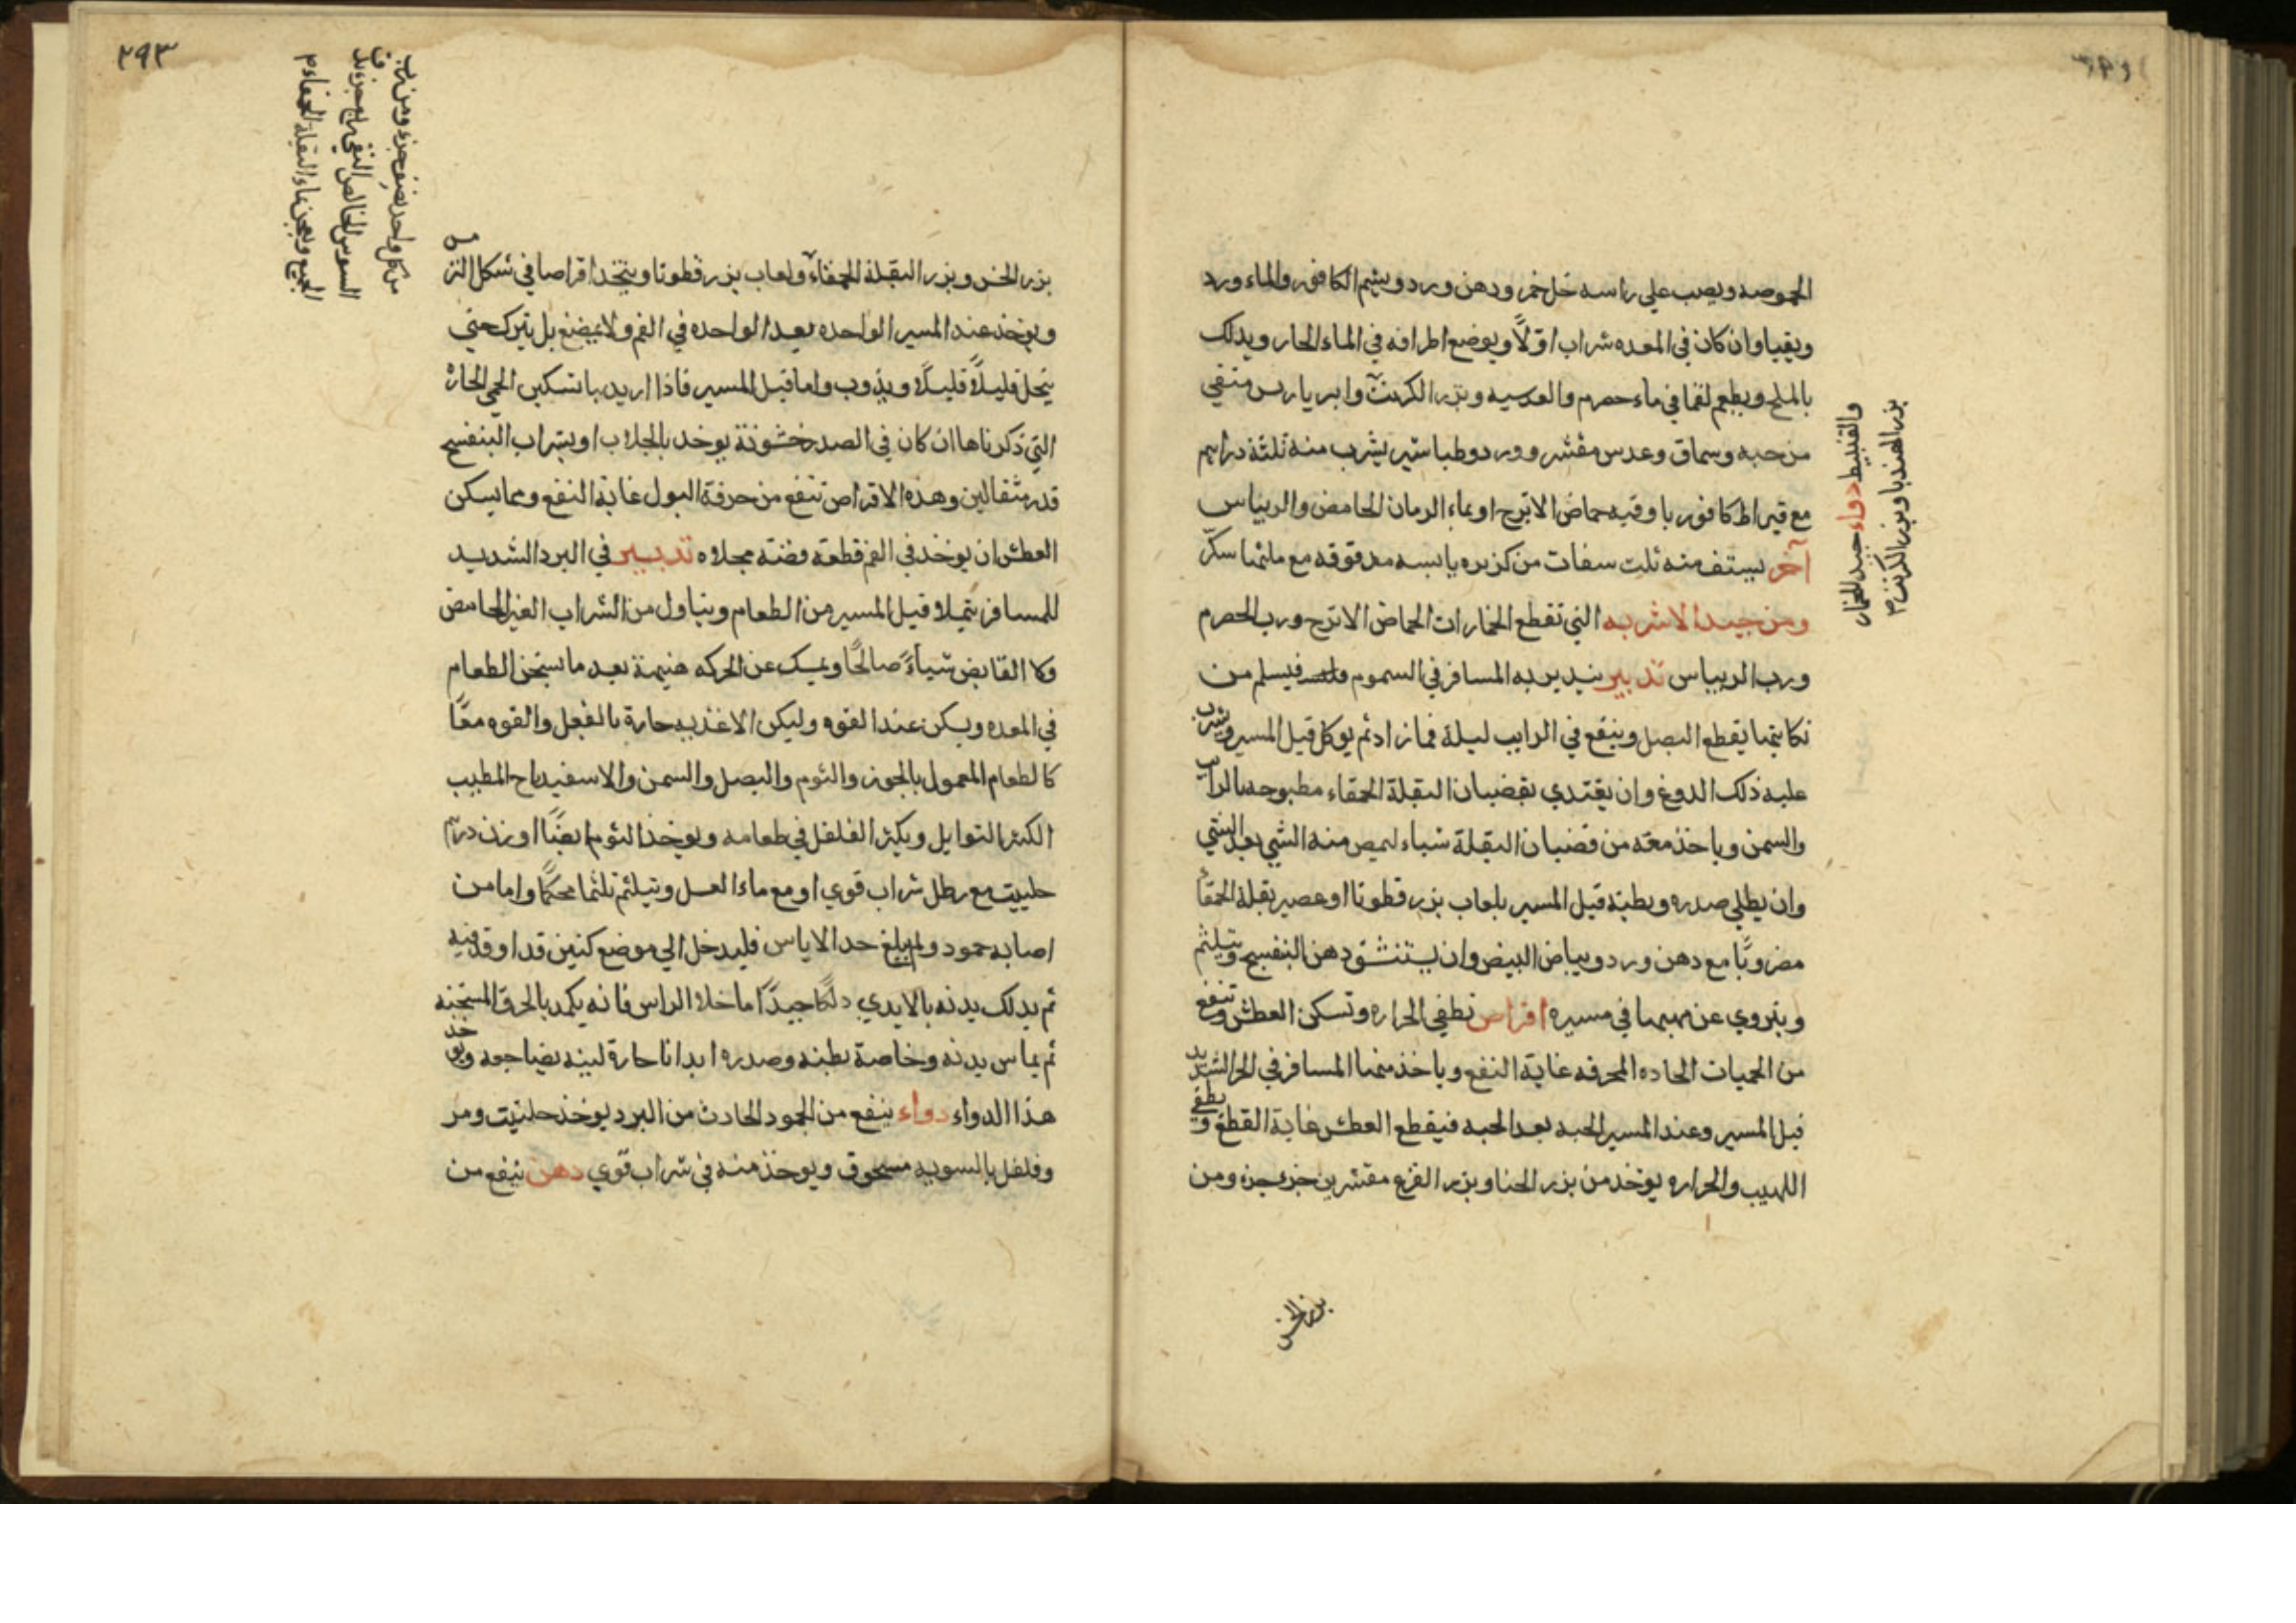 الحموضه ويصب علي راسه خل خمر ودهن ورد ويشم الكافور والماء ورد
ويقيا وان كان في المعده شراب اوّلًا ويوضع اطرافه في الماء الحار ويدلك
بالملح ويطعم لقما في ماء حصرم والعدسيه وبزر الكرنب وابرباريس منقي
من حبه وسماق وعدس مقشر وورد وطباشير يشرب منه ثلثة دراهم
مع قيراط كافور باوقيه حماض الاترج او بماء الرمان الحامض والريباس
آخر يستف منه ثلث سفات من كزبره يابسه مدقوقه مع مثلها سكّر
ومن جيد الاشربه التي تقطع الخمارات الحماض الاترج ورب الحصرم
ورب الريباس تدبير يدبر به المسافر في السموم فيسلم من
نكايتها يقطع البصل وينقع في الرايب ليلة فما زاد ثم يوكل قبل المسير ويشرب
عليه ذلك الدوغ وان يغتدي بقضبان البقلة الحمقاء مطبوخه بالرايب
والسمن وياخذ معه من قضبان البقلة شياء ليمص منه الشي بعد الشي
وان يطلي صدره وبطنه قبل المسير بلعاب بزر قطونا او عصير بقلة الحمقا
مضروبًا مع دهن ورد وبياض البيض وان يستنشق دهن البنفسج ويتلثم
ويتروي عن مهبها في مسيره اقراص تطفي الحراره وتسكن العطش وتنفع
من الحميات الحاده المحرقه غاية النفع وياخذ منها المسافر في الحر الشديد
قبل المسير وعند المسير الحبه بعد الحبه فيقطع العطش غاية القطع ويطفي
اللهيب والحراره يوخذ من بزر الخيار وبزر القرع مقشرين جزء جزء ومن
بزر الخس
والقنبيط دواء جيد للخمار
بزر الهندبا وبزر الكرنب
٢٩٣
من كل واحد نصف جزء ومن رب
السوس الخالص النقي ربع جزء يدق
الجميع ويعجن بماء البقلة الحمقاء
بزر الخس وبزر البقلة الحمقاء ولعاب بزر قطونا ويتخذ اقراصا في شكل الترمس
ويوخذ عند المسير الواحده بعد الواحده في الفم ولا يمضغ بل يترك حتي
يتحل قليلًا قليلًا ويذوب واما قبل المسير فاذا اريد بها تسكين الحمي الحارة
التي ذكرناها ان كان في الصدر خشونة يوخد بالجلاب او بشراب البنفسج
قدر مثقالين وهذه الاقراص تنفع من حرقة البول غاية النفع ومما يسكن
العطش ان يوخذ في الفم قطعة فضته مجلاوه تدبير في البرد الشديد
للمسافر يتملا قبل المسير من الطعام ويتناول من الشراب الغير الحامض
ولا القابض شياءً صالحًا ويمسك عن الحركه هنيهة بعد ما يسخن الطعام
في المعده ويسكن عند القوه وليكن الاغذيه حارة بالفعل والقوه معًا
كالطعام المعمول بالجوز والثوم والبصل والسمن والاسفيدباح المطيب
الكثر التوابل ويكثر الفلفل في طعامه ويوخذ الثوم ايضًا او زن درهم
حلتيت مع رطل شراب قوي او مع ماء العسل ويتلثم تلثما محكمًا واما من
اصابه جمود ولم يبلغ حد الاياس فليدخل الي موضع كنين قد اوقد فيه
ثم يدلك بدنه بالايدي دلكًا جيدًا ما خلا الراس فانه يكمد بالخرق المسخنه
ثم يماس بدنه وخاصة بطنه وصدره ابدانا حارة لينه يضاجعه ويوخذ
هذا الدواء دواء ينفع من الجمود الحادث من البرد يوخذ حلتيت ومر
وفلفل بالسويه مسحوق ويوخذ منه في شراب قوي دهن ينفع من